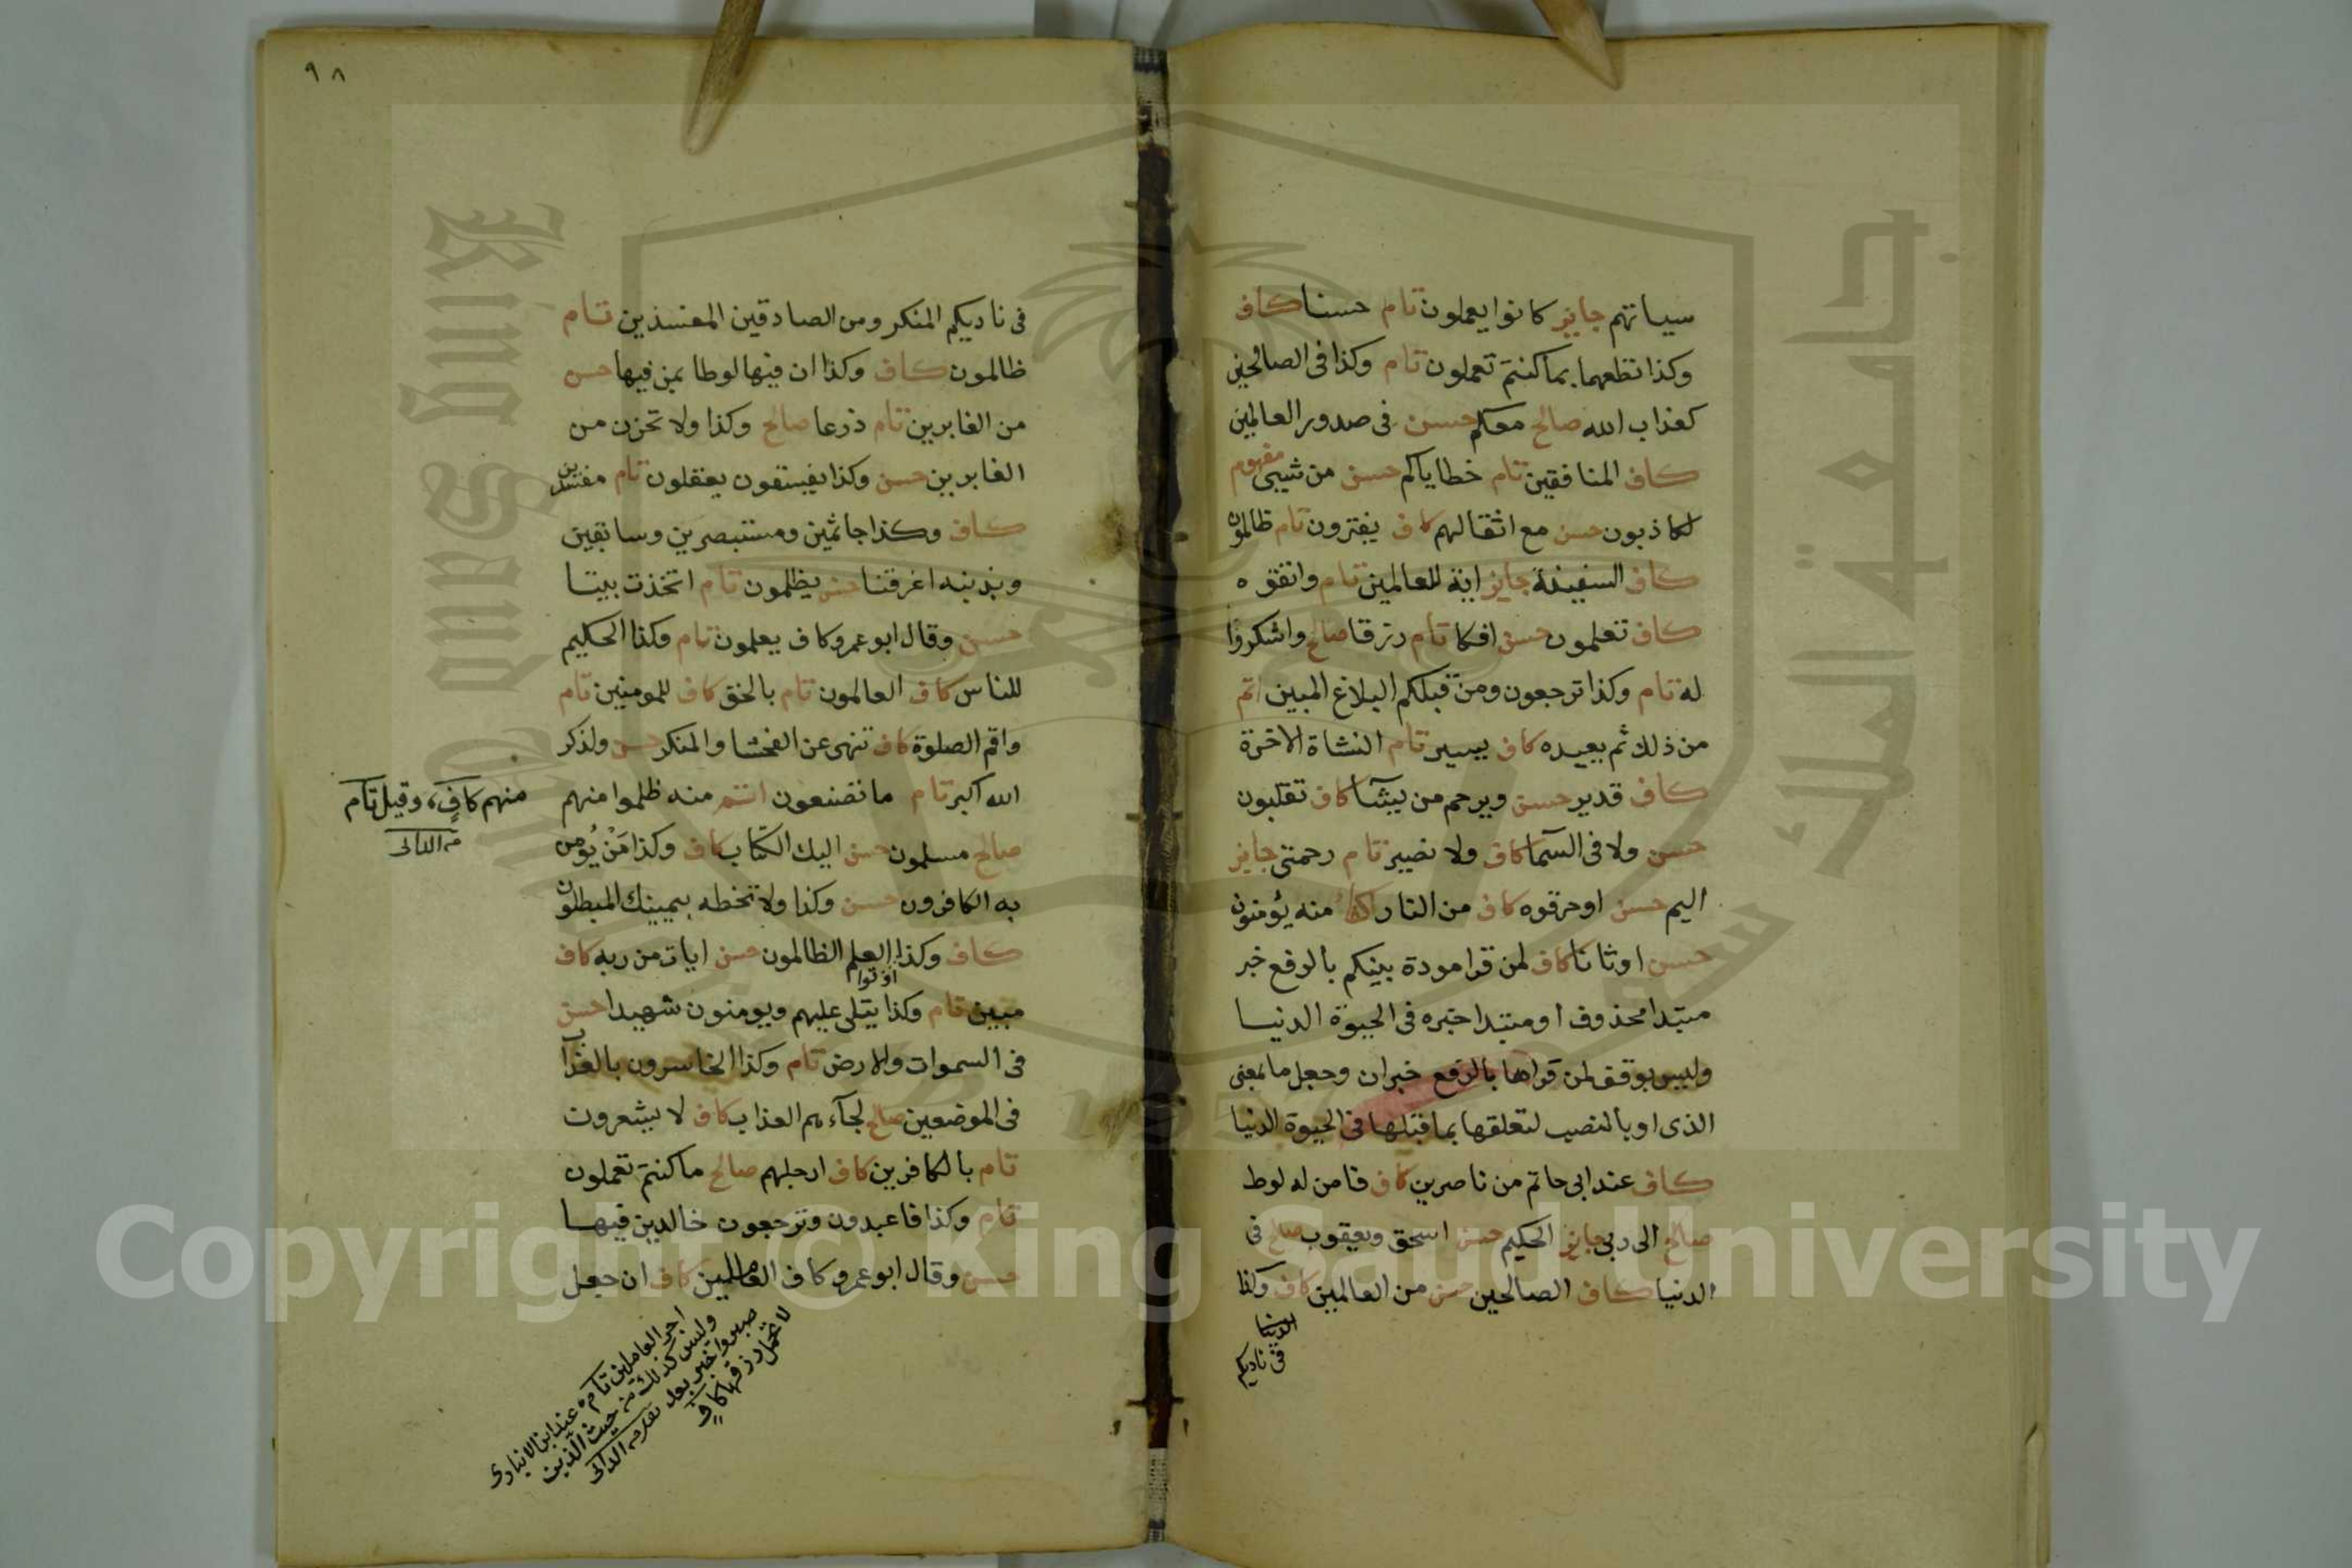 سياتهم جايز كانوا يعملون تام حسنا كاف
وكذا تطعهما بما كنتم تعملون تام وكذا فى الصالحين
كعذاب الله صالح معكم حسن فى صدور العالمين
كاف المنافقين تام خطاياكم حسن من شيى مفهوم
لكاذبون حسن مع اثقالهم كاف يفترون تام ظالمون
كاف السفينة جايز اية للعالمين تام واتقوه
كاف تعلمون حسن افكا تام رزقا صالح واشكروا
له تام وكذا ترجعون ومن قبلكم البلاغ المبين اتم
من ذلك ثم يعيده كاف يسير تام النشاة الاخرة
كاف قدير حسن ويرحم من يشآ كاف تقلبون
حسن ولا فى السمآ كاف ولا نصير تام رحمتى جايز
اليم حسن او حرقوه كاف من النار كاف منه يؤمنون
حسن اوثانا كاف لمن قرا مودة بينكم بالرفع خبر
مبتدا محذوف او مبتدا خبره فى الحيوة الدنيا
وليس بوقف لمن قراها بالرفع خبر ان وجعل ما بمعنى
الذى او بالنصب لتعلقها بما قبلها فى الحيوة الدنيا
كاف عند ابى حاتم من ناصرين كاف فامن له لوط
صالح الى ربى جايز الحكيم حسن اسحق ويعقوب صالح فى
الدنيا كاف الصالحين حسن من العالمين كاف وكذا
الدنيا
فى ناديكم
٩٨
فى ناديكم المنكر ومن الصادقين المفسدين تام
ظالمون كاف وكذا ان فيها لوطا بمن فيها حسن
من الغابرين تام ذرعا صالح وكذا ولا تحزن من
الغابرين حسن وكذا يفسقون يعقلون تام مفسدين
كاف وكذا جاثمين ومستبصرين وسابقين
وبذنبه اغرقنا حسن يظلمون تام اتخذت بيتا
حسن وقال ابو عمرو كاف يعلمون تام وكذا الحكيم
للناس كاف العالمون تام بالحق كاف للمومنين تام
واقم الصلوة كاف تنهى عن الفحشا والمنكر حسن ولذكر
الله اكبر تام ما تصنعون اتم منه ظلموا منهم
صالح مسلمون حسن اليك الكتاب كاف وكذا مَنْ يُؤمن
به الكافرون حسن وكذا ولا تخطه بيمينك المبطلون
كاف وكذا اوتوا العلم الظالمون حسن ايات من ربه كاف
مبين تام وكذا يتلى عليهم ويومنون شهيدا حسن
فى السموات والارض تام وكذا الخاسرون بالعذاب
فى الموضعين صالح لجآءهم العذاب كاف لا يشعرون
تام بالكافرين كاف ارجلهم صالح ما كنتم تعملون
تام وكذا فاعبدون وترجعون خالدين فيها
حسن وقال ابو عمرو كاف العاملين كاف ان جعل
منهم كاف، وقيل تام
من الدانى
اجر العاملين تام عند ابن الانبارى
وليس كذلك من حيث الذين
صبروا خبر بعد تقدم من الدانى
لا تحمل رزقها كاف
Copyright © King Saud University
King Saud University
جامعة الملك سعود
1957